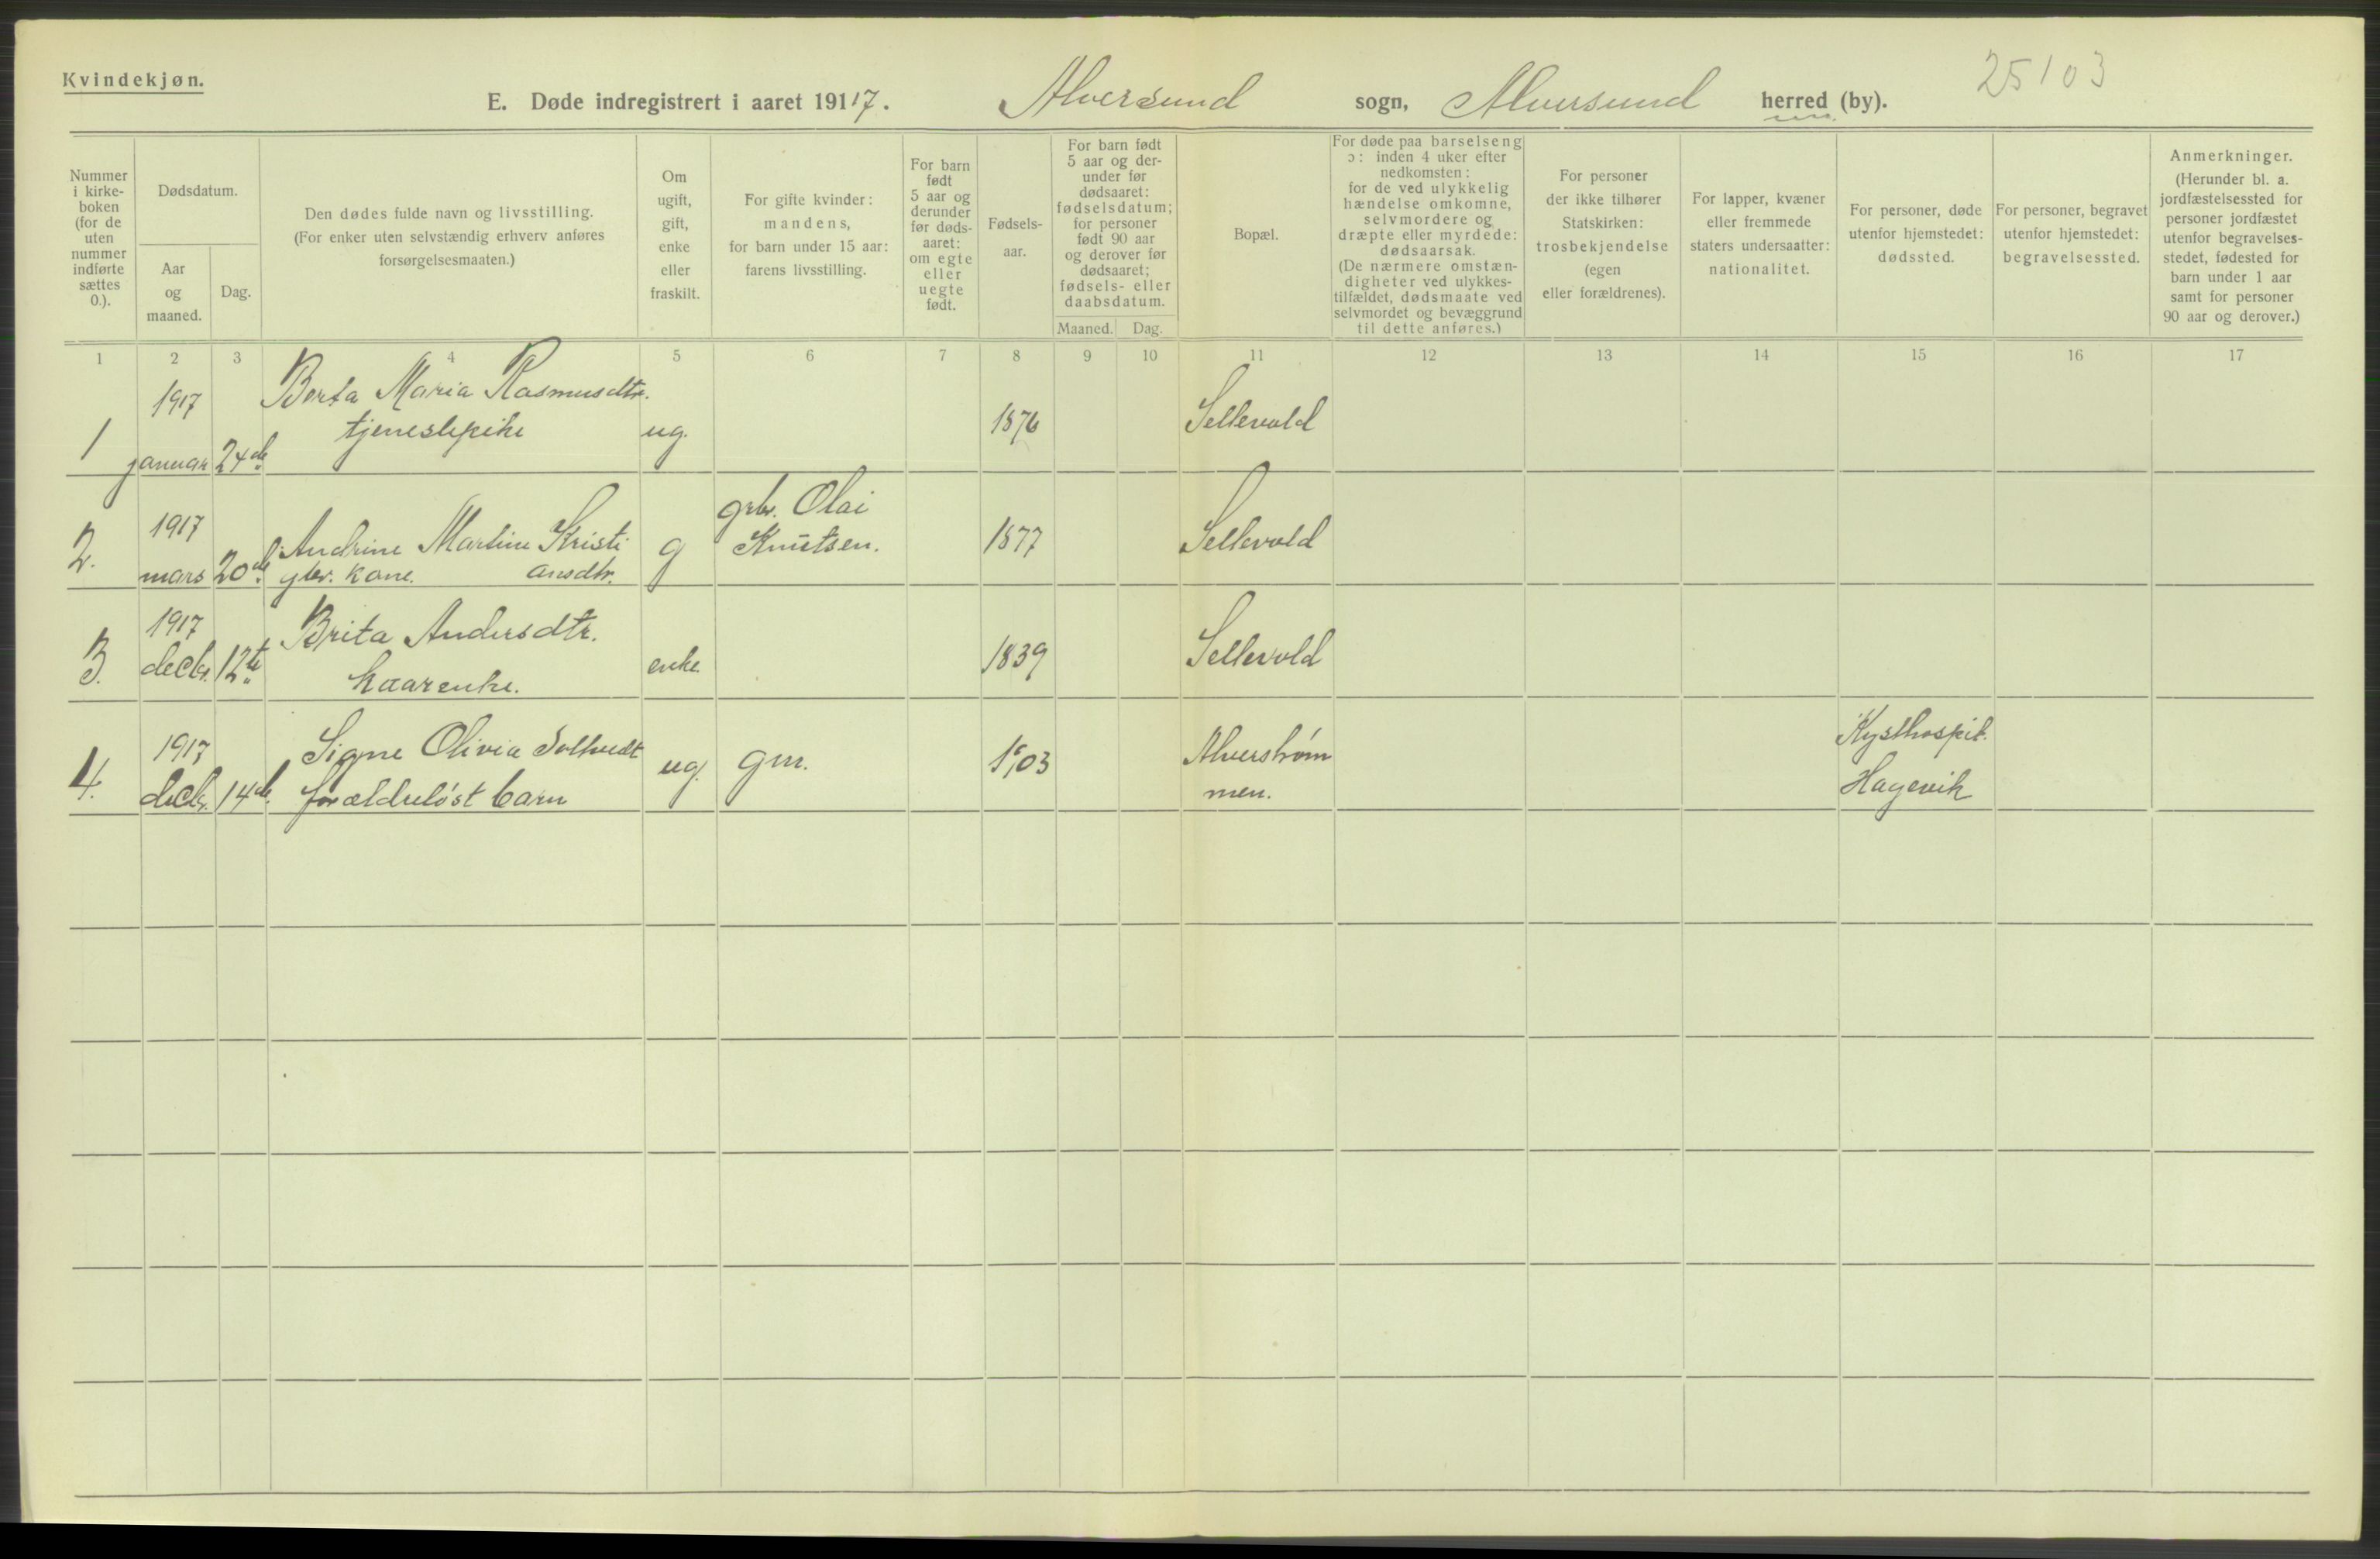 Kvindekjøn.
25103
E. Døde indregistrert i aaret 19117. Alversund sogn, Alversund herred (by).
Nummer i kirke-boken (for de uten nummer indførte sættes 0.).
Dødsdatum.
Aar og maaned.
Dag.
Den dødes fulde navn og livsstilling.
(For enker uten selvstændig erhverv anføres
forsørgelsesmaaten.)
Om
ugift,
gift,
enke
eller
fraskilt.
For gifte kvinder:
mandens,
for barn under 15 aar:
farens livsstilling.
For barn
født
5 aar og
derunder
før døds-
aaret:
om egte
eller
uegte
født.
Fødsels-
aar.
For barn født
5 aar og der-
under før
dødsaaret:
fødselsdatum;
for personer
født 90 aar
og derover før
dødsaaret;
fødsels- eller
daabsdatum.
Maaned. Dag.
Bopæl.
For døde paa barselseng
ɔ: inden 4 uker efter
nedkomsten:
for de ved ulykkelig
hændelse omkomne,
selvmordere og
dræpte eller myrdede:
dødsaarsak.
(De nærmere omstæn-
digheter ved ulykkes-
tilfældet, dødsmaate ved
selvmordet og bevæggrund
til dette anføres.)
For personer
der ikke tilhører
Statskirken:
trosbekjendelse
(egen
eller forældrenes).
For lapper, kvæner
eller fremmede
staters undersaatter:
nationalitet.
For personer, døde
utenfor hjemstedet:
dødssted.
For personer, begravet
utenfor hjemstedet:
begravelsessted.
Anmerkninger.
(Herunder bl. a.
jordfæstelsessted for
personer jordfæstet
utenfor begravelses-
stedet, fødested for
barn under 1 aar
samt for personer
90 aar og derover.)
1 2 3 4 5 6 7 8 9 10 11 12 13 14 15 16 17
1 1917 januar 24de Berta Maria Rasmusdtr. tjenestepike ug. 1876 Sellevold
2. 1917 mars 20de Andrine Martine Kristi ansdtr. kone. g grbr. Olai Knutsen. 1877 Sellevold
3. 1917 decbr. 12te Brita Andersdtr. kaarenke. enke 1839 Sellevold
4. 1917 decbr. 14de. Signe Olivia forældreløst barn ug. gm. 1903 Alverstrøm men. Kysthospit. Hagevik